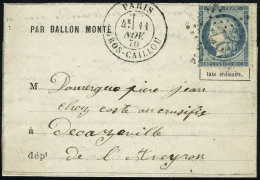 PAR BALLON MONTÉ
PARIS
11
NOV
70
GROS-CAILLOU
taxe ordinaire.
M Domergue pierre jean
chez
à Decazeville
dépt de l'Aveyron